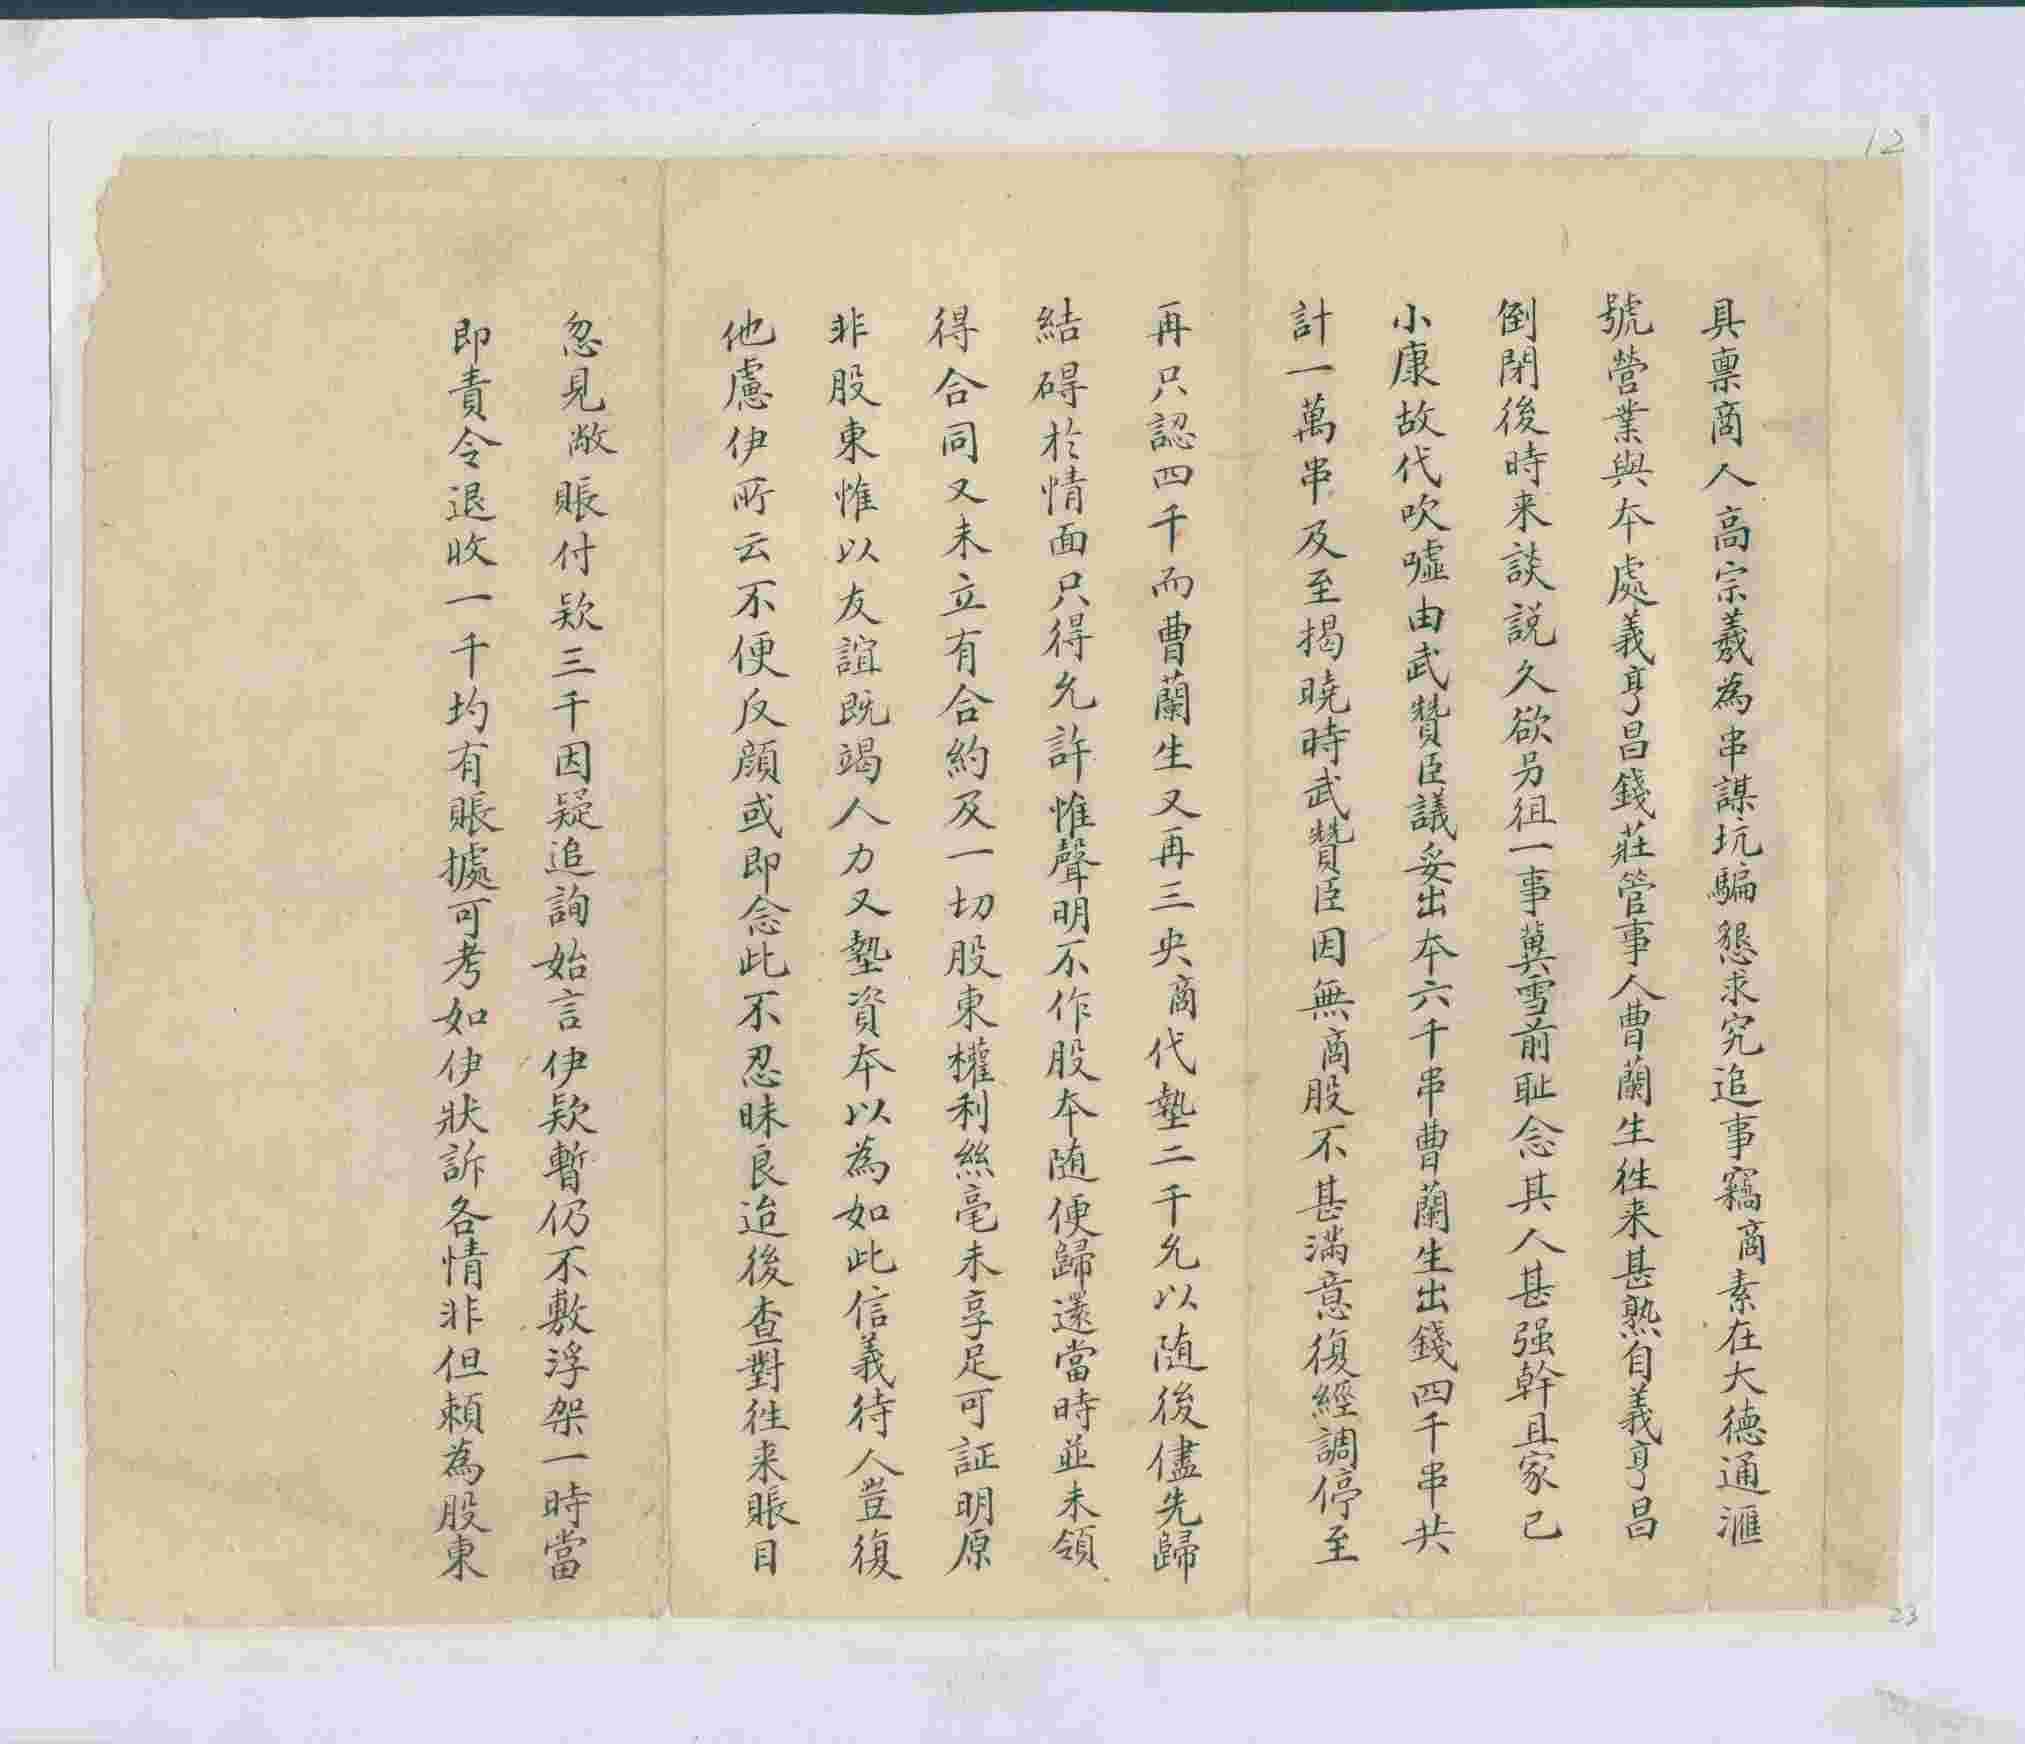 12
具稟商人高宗羲為串謀坑騙懇求究追事竊商素在大德通滙
號營業與本處義亨昌錢莊管事人曹蘭生徃来甚熟自義亨昌
倒閉後時来談説久欲另徂一事冀雪前耻念其人甚强幹且家已
小康故代吹噓由武贊臣議妥出本六千串曹蘭生出錢四千串共
計一萬串及至揭曉時武贊臣因無商股不甚滿意復經調停至
再只認四千而曹蘭生又再三央商代墊二千允以随後儘先歸
結碍於情面只得允許惟聲明不作股本随便歸還當時並未領
得合同又未立有合約及一切股東權利絲毫未享足可証明原
非股東惟以友誼既竭人力又墊資本以為如此信義待人豈復
他慮伊所云不便反顔或即念此不忍昧良迨後查對徃来賬目
忽見敝賬付欵三千因疑追詢始言伊欵暫仍不敷浮架一時當
即責令退收一千均有賬據可考如伊狀訴各情非但頼為股東
23